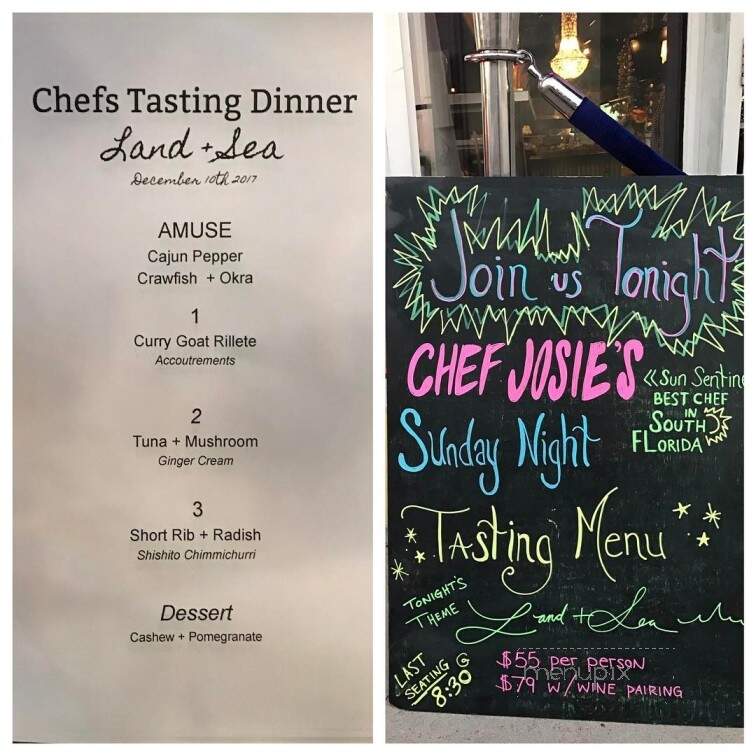 Chefs Tasting Dinner
Land + Sea
December 10th 2017
AMUSE
Cajun Pepper
Crawfish + Okra
1
Curry Goat Rillete
Accoutrements
2
Tuna + Mushroom
Ginger Cream
3
Short Rib + Radish
Shishito Chimmichurri
Dessert
Cashew + Pomegranate
Join us Tonight
CHEF JOSIE'S
<<Sun Sentine
BEST CHEF
IN
SOUTH
FLORIDA
Sunday Night
Tasting Menu
TONIGHT'S
THEME
Land + Sea
LAST
SEATING @
8:30
$55 per person
$79 w/WINE PAIRING
menupix